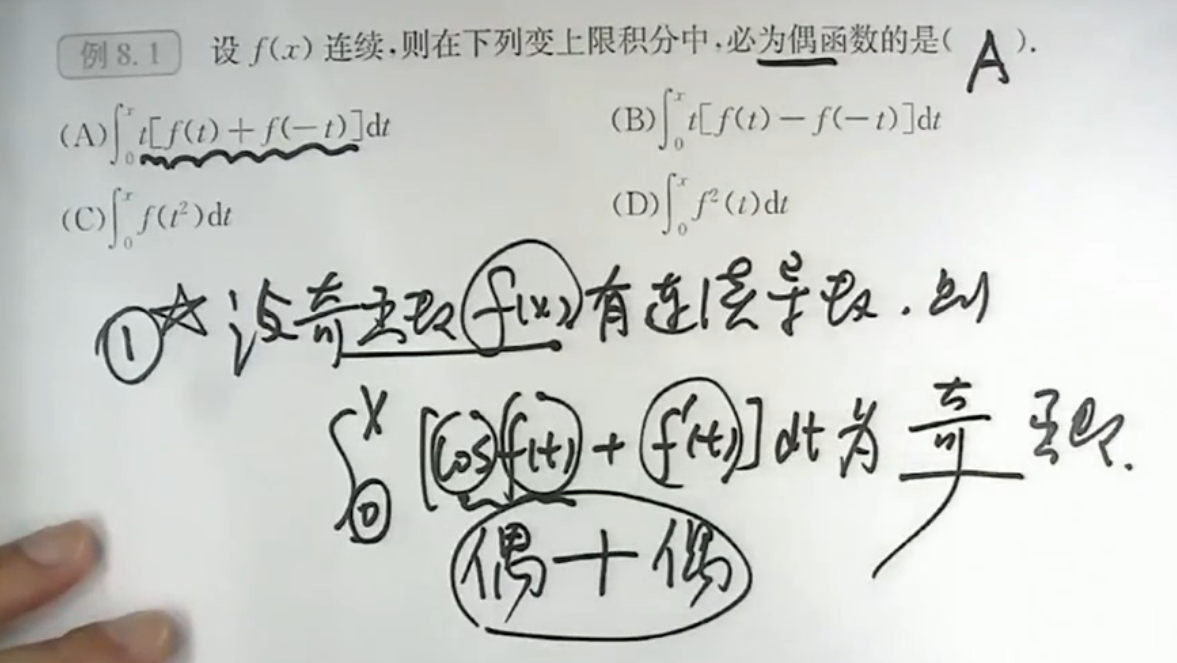 例 8.1 设 f(x) 连续,则在下列变上限积分中,必为偶函数的是( A ).
(A)∫₀ˣ t[f(t)+f(-t)]dt (B)∫₀ˣ t[f(t)-f(-t)]dt
(C)∫₀ˣ f(t²)dt (D)∫₀ˣ f²(t)dt
①☆ 设奇函数 f(x) 有连续导数,则
∫₀ˣ [cosf(t)+f'(t)]dt 为 奇 函数.
偶+偶